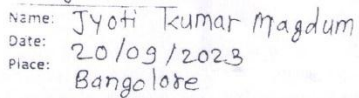 Name: Jyoti Kumar Magdum
Date: 20/09/2023
Place: Bangolore